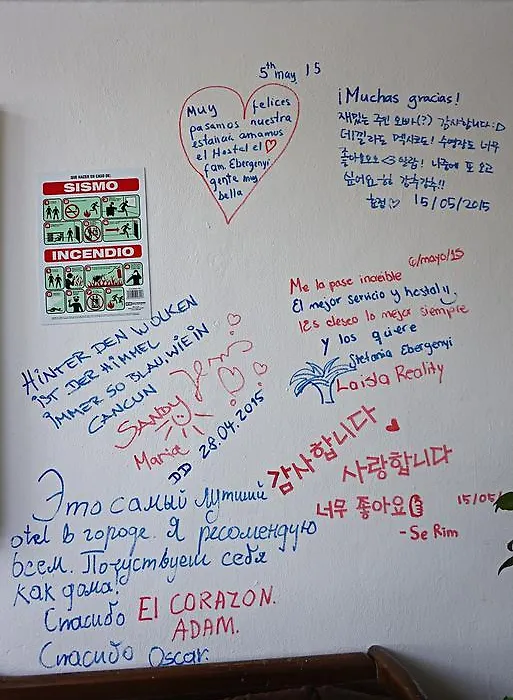 5th may 15
Muy felices
pasamos nuestra
estancia amamos
el Hostel el ♡
fam. Ebergenyi
gente muy
bella
¡Muchas gracias!
재밌는 주인 오빠(?) 감사합니다:D
데낄라도 멕시코도! 수영장도 너무
좋아요오오 <3 알럽! 나중에 또 오고
싶어요 ㅎㅎ 강추강추!!
효정♡ 15/05/2015
QUE HACER EN CASO DE:
SISMO
INCENDIO
6/mayo/15
Me la pase increible
El mejor servicio y hostal y
les deseo lo mejor siempre
y los quiere
Stefania Ebergenyi
Laista Reality
HINTER DEN WOLKEN
IST DER HIMMEL
IMMER SO BLAU WIE IN
CANCUN
SANDY
Maria
DD 28.04.2015
감사합니다
사랑합니다
너무 좋아요
15/05/
-Se Rim
Это самый лутший
otel в городе. Я ресомендую
всем. Почуствуеш себя
как дома!
Спасибо El CORAZON.
ADAM.
Спасибо Oscar.